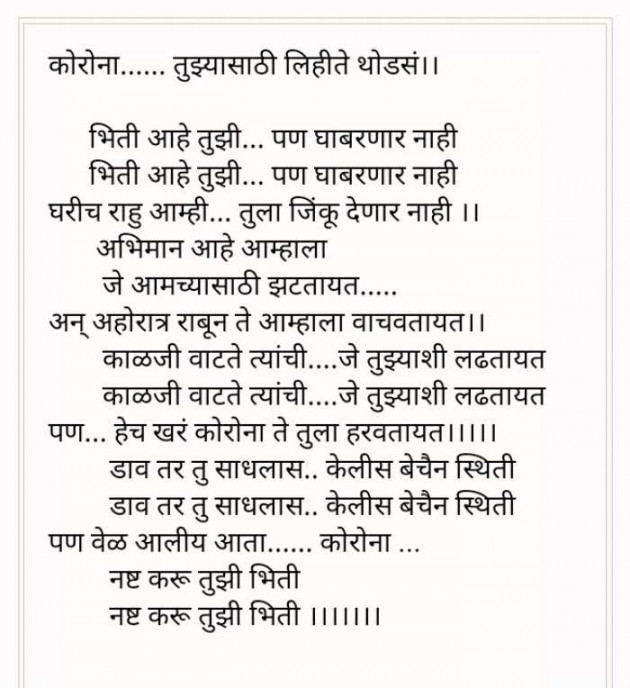 कोरोना...... तुझ्यासाठी लिहीते थोडसं।।
भिती आहे तुझी... पण घाबरणार नाही
भिती आहे तुझी... पण घाबरणार नाही
घरीच राहु आम्ही... तुला जिंकू देणार नाही ।।
अभिमान आहे आम्हाला
जे आमच्यासाठी झटतायत.....
अन् अहोरात्र राबून ते आम्हाला वाचवतायत।।
काळजी वाटते त्यांची....जे तुझ्याशी लढतायत
काळजी वाटते त्यांची....जे तुझ्याशी लढतायत
पण... हेच खरं कोरोना ते तुला हरवतायत।।।।।
डाव तर तु साधलास.. केलीस बेचैन स्थिती
डाव तर तु साधलास.. केलीस बेचैन स्थिती
पण वेळ आलीय आता...... कोरोना ...
नष्ट करू तुझी भिती
नष्ट करू तुझी भिती ।।।।।।।